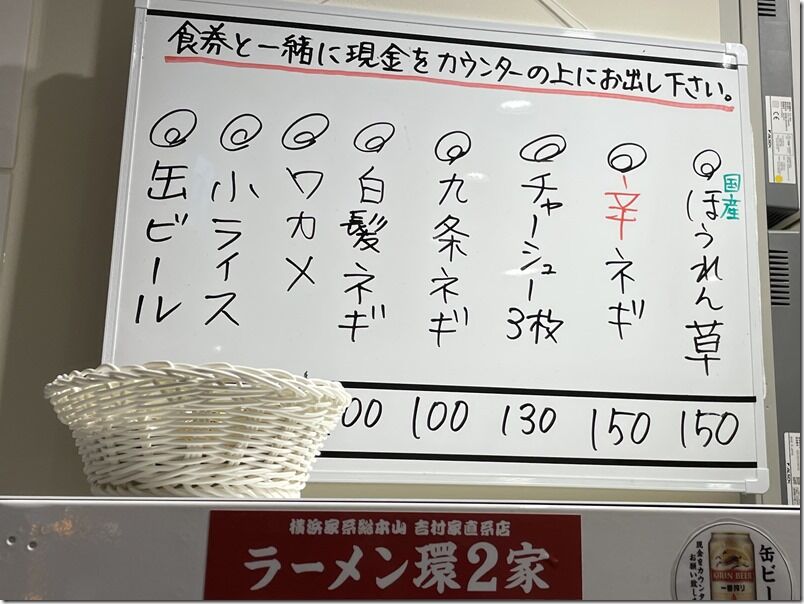 食券と一緒に現金をカウンターの上にお出し下さい。
国産
ほうれん草
辛ネギ
チャーシュー3枚
九条ネギ
白髪ネギ
ワカメ
小ライス
缶ビール
100 130 150 150
横浜家系総本山 吉村家直系店
ラーメン環2家
缶ビー
現金をカウンタ
お願い致し
KIRIN BEER
一番搾り